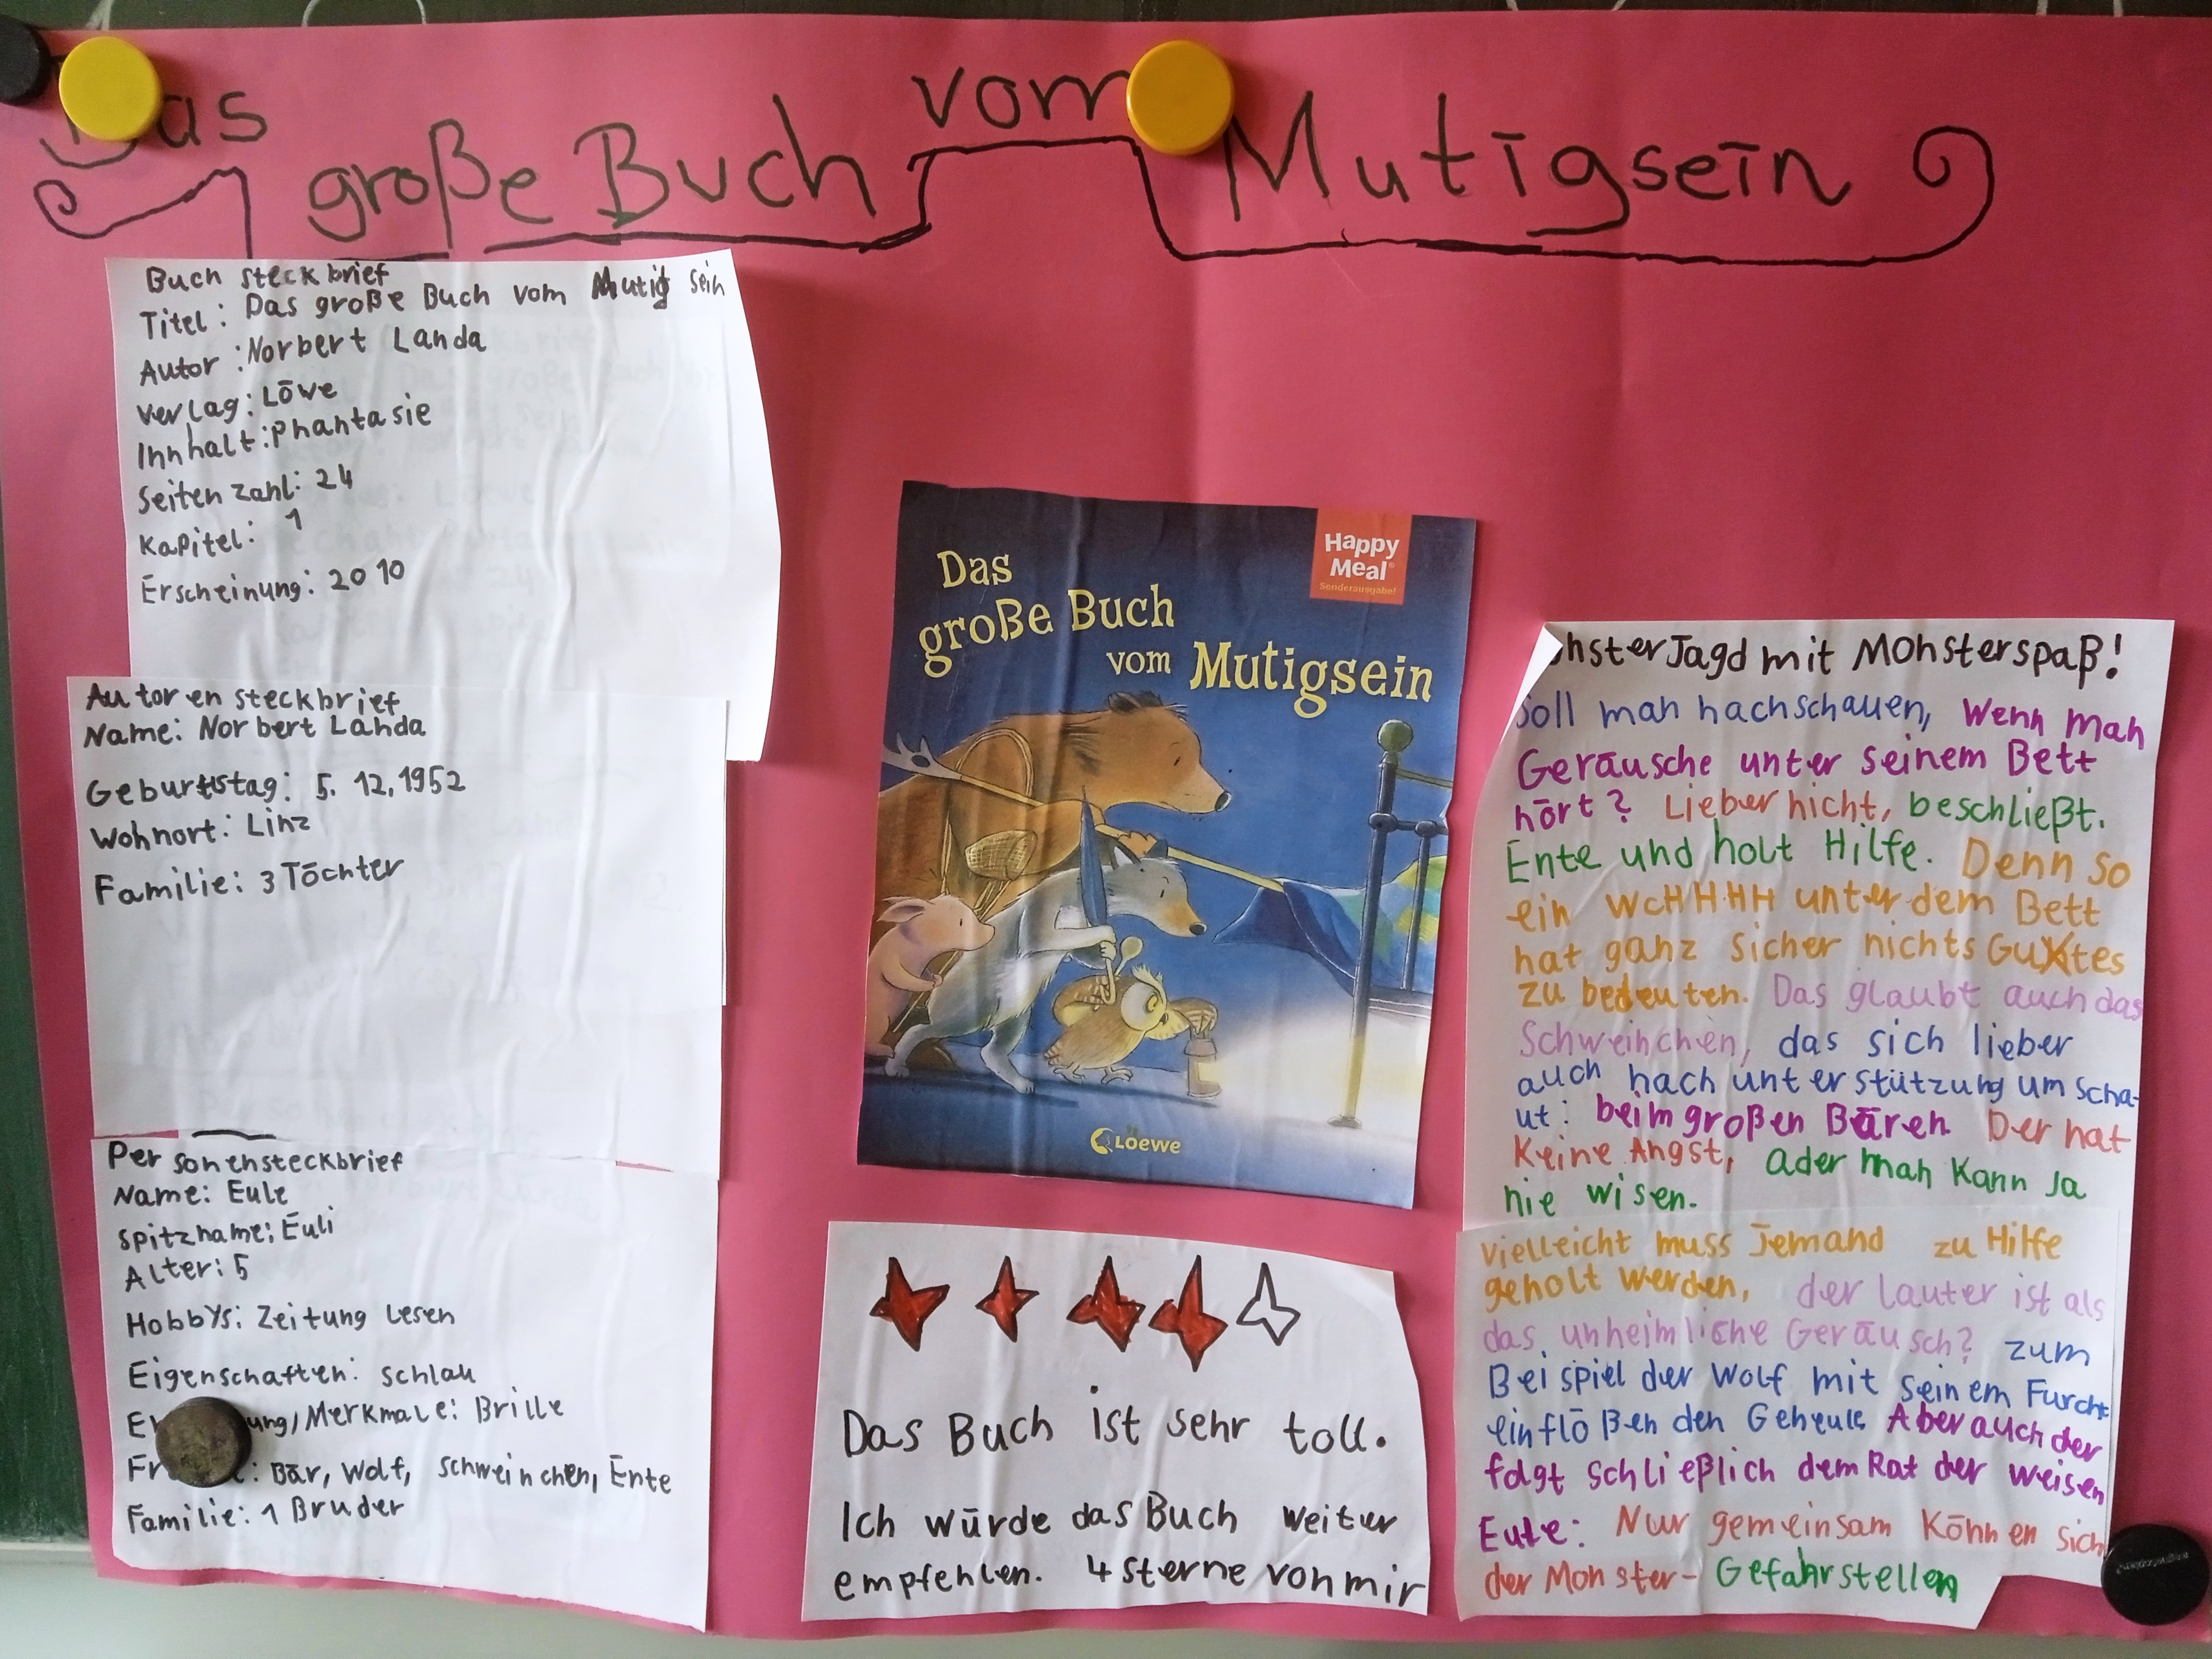 Das
große Buch
vom
Mutigsein
Buch steckbrief
Titel: Das große Buch vom Mutig sein
Autor: Norbert Landa
Verlag: Löwe
Innhalt: Phantasie
Seiten zahl: 24
Kapitel: 1
Erscheinung: 2010
Autoren steckbrief
Name: Norbert Landa
Geburtstag: 5. 12. 1952
Wohnort: Linz
Familie: 3 Töchter
Personensteckbrief
Name: Eule
Spitzname: Euli
Alter: 5
Hobbys: Zeitung Lesen
Eigenschaften: schlau
ung/Merkmale: Brille
Fr : Bär, Wolf, schweinchen, Ente
Familie: 1 Bruder
Happy
Meal®
Sonderausgabe!
Das
große Buch
vom Mutigsein
Loewe
Das Buch ist sehr toll.
Ich würde das Buch weiter
empfehlen. 4 Sterne von mir
onsterJagd mit Monsterspaß!
Soll man nachschauen, Wenn man
Geräusche unter seinem Bett
hört? Lieber nicht, beschließt.
Ente und holt Hilfe. Denn so
ein WcHHHH unter dem Bett
hat ganz sicher nichts Gutes
zu bedeuten. Das glaubt auch das
Schweinchen, das sich lieber
auch nach unterstützung um scha-
ut: beim großen Bären Der hat
Keine Angst, ader man Kann Ja
nie wisen.
vielleicht muss Jemand zu Hilfe
geholt werden, der lauter ist als
das unheimliche Geräusch? zum
Beispiel der Wolf mit seinem Furcht
einflößen den Geheule Aber auch der
folgt schließlich dem Rat der weisen
Eule: Nur gemeinsam Können sich
der Monster- Gefahr stellen